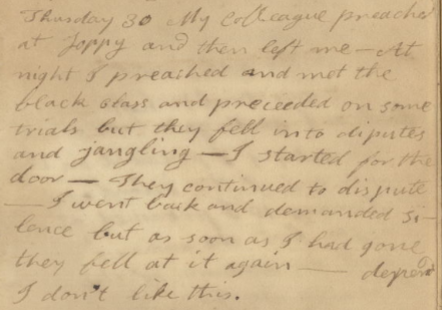 Thursday 30 My Colleague preached
at Joppy and then left me — At
night I preached and met the
black class and preceeded on some
trials but they fell into disputes
and jangling — I started for the
door — They continued to dispute
— I went back and demanded Si-
lence but as soon as I had gone
they fell at it again —
I don't like this.